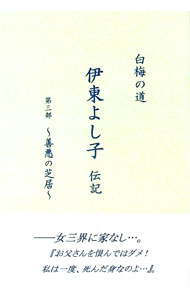 白梅の道
伊東よし子 伝記
第三部
～善悪の芝居～
――女三界に家なし…。
『お父さんを恨んではダメ!
私は一度、死んだ身なのよ…』